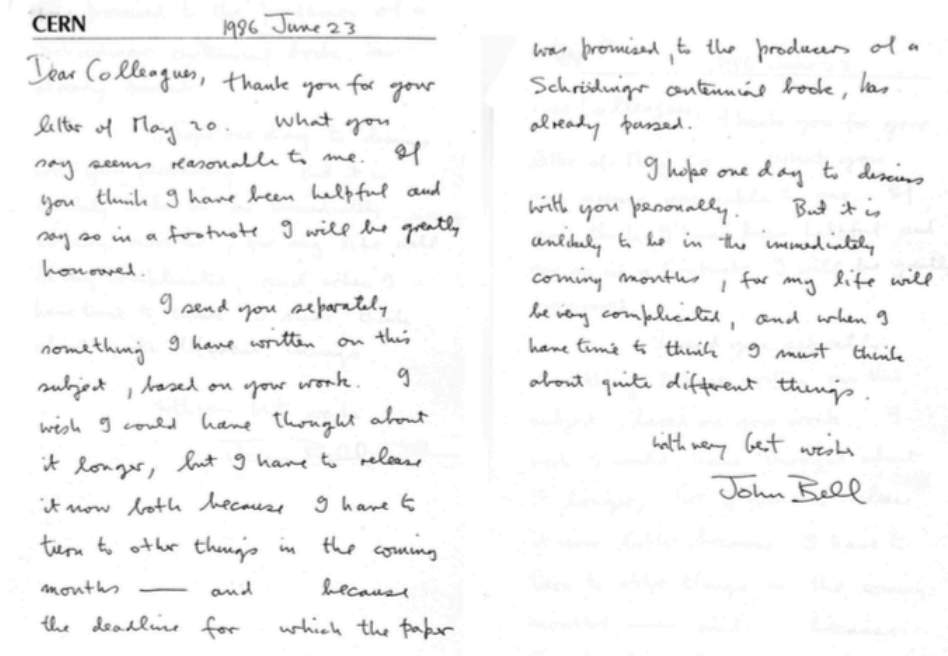 CERN 1986 June 23
Dear Colleagues, thank you for your
letter of May 20. What you
say seems reasonable to me. If
you think I have been helpful and
say so in a footnote I will be greatly
honoured.
I send you separately
something I have written on this
subject, based on your work. I
wish I could have thought about
it longer, but I have to release
it now both because I have to
turn to other things in the coming
months — and because
the deadline for which the paper
was promised, to the producers of a
Schrödinger centennial book, has
already passed.
I hope one day to discuss
with you personally. But it is
unlikely to be in the immediately
coming months, for my life will
be very complicated, and when I
have time to think I must think
about quite different things.
with very best wishes
John Bell